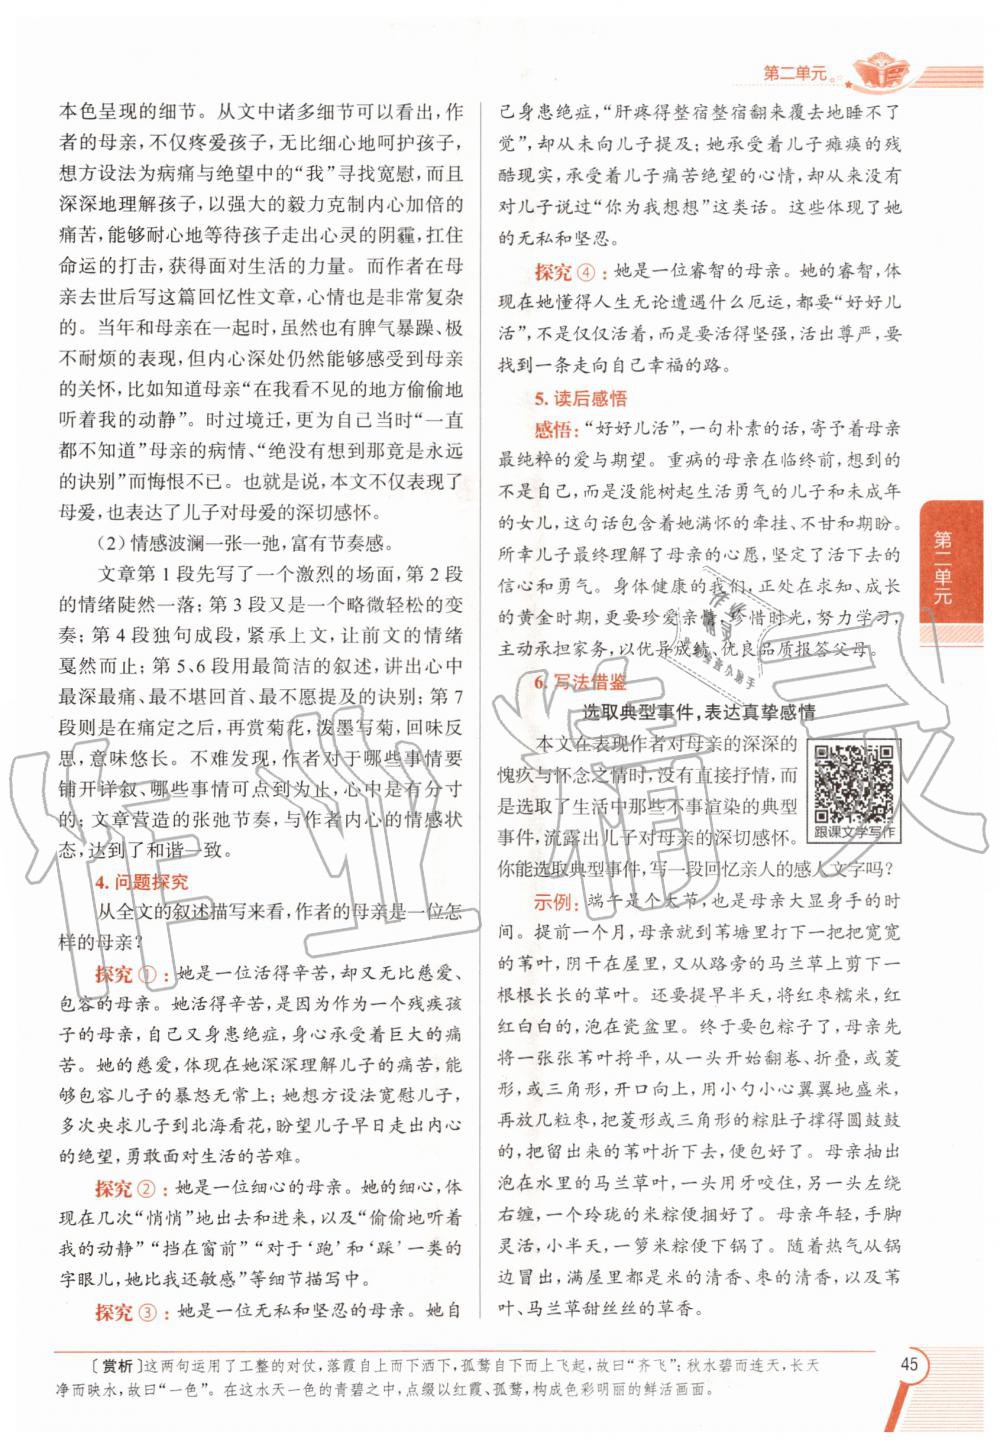 第二单元
本色呈现的细节。从文中诸多细节可以看出,作
者的母亲,不仅疼爱孩子,无比细心地呵护孩子,
想方设法为病痛与绝望中的“我”寻找宽慰,而且
深深地理解孩子,以强大的毅力克制内心加倍的
痛苦,能够耐心地等待孩子走出心灵的阴霾,扛住
命运的打击,获得面对生活的力量。而作者在母
亲去世后写这篇回忆性文章,心情也是非常复杂
的。当年和母亲在一起时,虽然也有脾气暴躁、极
不耐烦的表现,但内心深处仍然能够感受到母亲
的关怀,比如知道母亲“在我看不见的地方偷偷地
听着我的动静”。时过境迁,更为自己当时“一直
都不知道”母亲的病情、“绝没有想到那竟是永远
的诀别”而悔恨不已。也就是说,本文不仅表现了
母爱,也表达了儿子对母爱的深切感怀。
(2)情感波澜一张一弛,富有节奏感。
文章第1段先写了一个激烈的场面,第2段
的情绪陡然一落;第3段又是一个略微轻松的变
奏;第4段独句成段,紧承上文,让前文的情绪
戛然而止;第5、6段用最简洁的叙述,讲出心中
最深最痛、最不堪回首、最不愿提及的诀别;第7
段则是在痛定之后,再赏菊花,泼墨写菊,回味反
思,意味悠长。不难发现,作者对于哪些事情要
铺开详叙、哪些事情可点到为止,心中是有分寸
的;文章营造的张弛节奏,与作者内心的情感状
态,达到了和谐一致。
4. 问题探究
从全文的叙述描写来看,作者的母亲是一位怎
样的母亲?
探究①:她是一位活得辛苦,却又无比慈爱、
包容的母亲。她活得辛苦,是因为作为一个残疾孩
子的母亲,自己又身患绝症,身心承受着巨大的痛
苦。她的慈爱,体现在她深深理解儿子的痛苦,能
够包容儿子的暴怒无常上;她想方设法宽慰儿子,
多次央求儿子到北海看花,盼望儿子早日走出内心
的绝望,勇敢面对生活的苦难。
探究②:她是一位细心的母亲。她的细心,体
现在几次“悄悄”地出去和进来,以及“偷偷地听着
我的动静”“挡在窗前”“对于‘跑’和‘踩’一类的
字眼儿,她比我还敏感”等细节描写中。
探究③:她是一位无私和坚忍的母亲。她自
己身患绝症,“肝疼得整宿整宿翻来覆去地睡不了
觉”,却从未向儿子提及;她承受着儿子瘫痪的残
酷现实,承受着儿子痛苦绝望的心情,却从来没有
对儿子说过“你为我想想”这类话。这些体现了她
的无私和坚忍。
探究④:她是一位睿智的母亲。她的睿智,体
现在她懂得人生无论遭遇什么厄运,都要“好好儿
活”,不是仅仅活着,而是要活得坚强,活出尊严,要
找到一条走向自己幸福的路。
5. 读后感悟
感悟:“好好儿活”,一句朴素的话,寄予着母亲
最纯粹的爱与期望。重病的母亲在临终前,想到的
不是自己,而是没能树起生活勇气的儿子和未成年
的女儿,这句话包含着她满怀的牵挂、不甘和期盼。
所幸儿子最终理解了母亲的心愿,坚定了活下去的
信心和勇气。身体健康的我们,正处在求知、成长
的黄金时期,更要珍爱亲情,珍惜时光,努力学习,
主动承担家务,以优异成绩、优良品质报答父母。
6. 写法借鉴
选取典型事件,表达真挚感情
本文在表现作者对母亲的深深的
愧疚与怀念之情时,没有直接抒情,而
是选取了生活中那些不事渲染的典型
事件,流露出儿子对母亲的深切感怀。
你能选取典型事件,写一段回忆亲人的感人文字吗?
跟课文学写作
示例:端午是个大节,也是母亲大显身手的时
间。提前一个月,母亲就到苇塘里打下一把把宽宽
的苇叶,阴干在屋里,又从路旁的马兰草上剪下一
根根长长的草叶。还要提早半天,将红枣糯米,红
红白白的,泡在瓷盆里。终于要包粽子了,母亲先
将一张张苇叶捋平,从一头开始翻卷、折叠,或菱
形,或三角形,开口向上,用小勺小心翼翼地盛米,
再放几粒枣,把菱形或三角形的粽肚子撑得圆鼓鼓
的,把留出来的苇叶折下去,便包好了。母亲抽出
泡在水里的马兰草叶,一头用牙咬住,另一头左绕
右缠,一个玲珑的米粽便捆好了。母亲年轻,手脚
灵活,小半天,一箩米粽便下锅了。随着热气从锅
边冒出,满屋里都是米的清香、枣的清香,以及苇
叶、马兰草甜丝丝的草香。
第二单元
[赏析]这两句运用了工整的对仗,落霞自上而下洒下,孤鹜自下而上飞起,故曰“齐飞”;秋水碧而连天,长天
净而映水,故曰“一色”。在这水天一色的青碧之中,点缀以红霞、孤鹜,构成色彩明丽的鲜活画面。
45
作业精灵